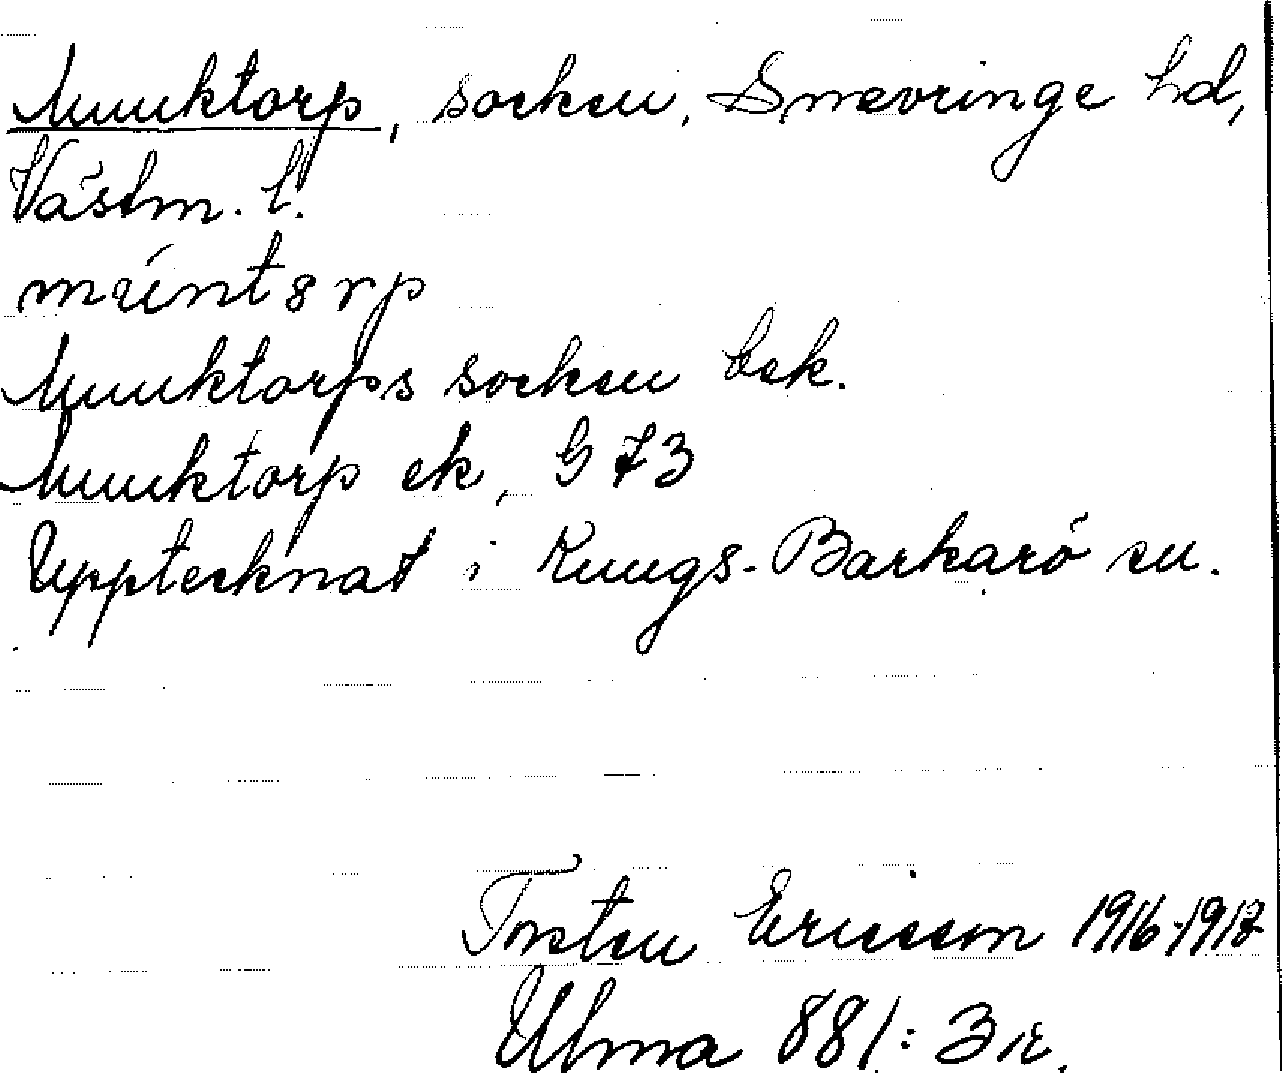 Munktorp, socken, Snevringe hd,
Västm. l.
múnt8rp
Munktorps socken bek.
Munktorp ek, G 73
Upptecknat i Kungs-Barkarö sn.
Torsten Ericsson 1916-1918
Ulma 881:3